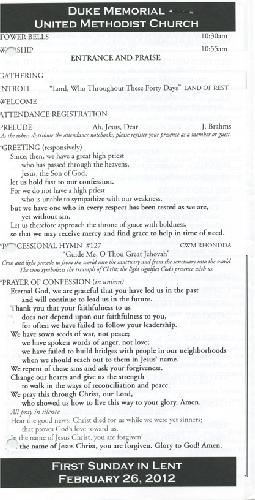 DUKE MEMORIAL
UNITED METHODIST CHURCH
TOWER BELLS 10:30am
WORSHIP 10:55am
ENTRANCE AND PRAISE
GATHERING
INTROIT "Lord, Who Throughout These Forty Days" LAND OF REST
WELCOME
ATTENDANCE REGISTRATION
PRELUDE Ah, Jesus, Dear J. Brahms
As the ushers distribute the attendance notebooks, please register your presence as a member or guest
*GREETING (responsively)
Since, then, we have a great high priest
who has passed through the heavens,
Jesus, the Son of God,
let us hold fast to our confession.
For we do not have a high priest
who is unable to sympathize with our weakness,
but we have one who in every respect has been tested as we are,
yet without sin.
Let us therefore approach the throne of grace with boldness,
so that we may receive mercy and find grace to help in time of need.
*PROCESSIONAL HYMN #127 CWM RHONDDA
"Guide Me, O Thou Great Jehovah"
Cross and light process in from the world into the sanctuary and from the sanctuary into the world.
The cross symbolizes the triumph of Christ; the light signifies God's presence with us.
*PRAYER OF CONFESSION (in unison)
Eternal God, we are grateful that you have led us in the past
and will continue to lead us in the future.
Thank you that your faithfulness to us
does not depend upon our faithfulness to you,
for often we have failed to follow your leadership.
We have sown seeds of war, not peace;
we have spoken words of anger, not love;
we have failed to build bridges with people in our neighborhoods
when we should reach out to them in Jesus' name.
We repent of these sins and ask your forgiveness.
Change our hearts and give us the strength
to walk in the ways of reconciliation and peace.
We pray this through Christ, our Lord,
who showed us how to live this way to your glory. Amen.
All pray in silence
Hear the good news: Christ died for us while we were yet sinners;
that proves God's love toward us.
In the name of Jesus Christ, you are forgiven!
the name of Jesus Christ, you are forgiven. Glory to God! Amen.
FIRST SUNDAY IN LENT
FEBRUARY 26, 2012